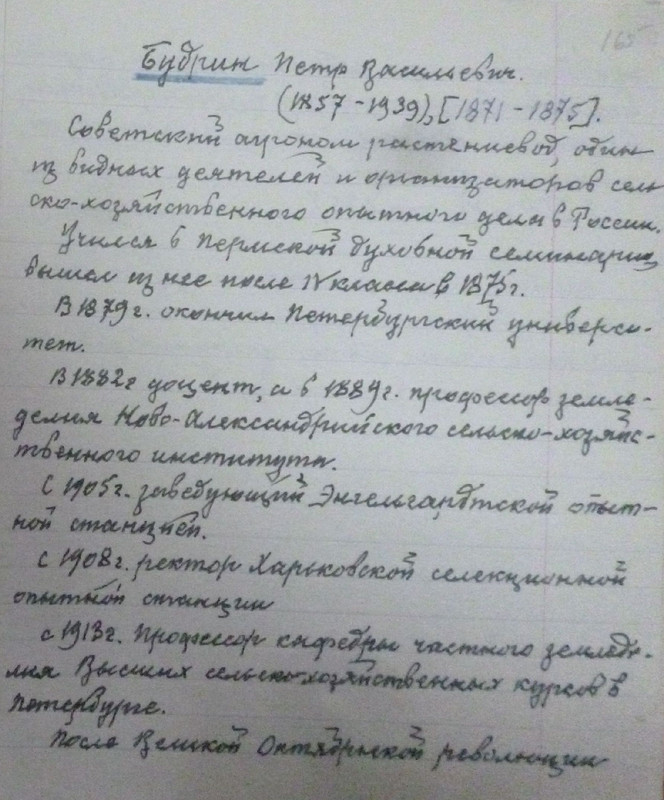 165
Бубрин Петр Васильевич.
(1857 - 1939), [1871 - 1875].
Советский агроном растениевод, один
из видных деятелей и организаторов сель
ско-хозяйственного опытного дела в России.
Учился в Пермской духовной семинарии,
вышел из нее после IV класса в 1875г.
В 1879г. окончил Петербургский универси-
тет.
В 1882г доцент, а в 1889г. профессор земле-
делия Ново-Александрийского сельско-хозяйс-
твенного института.
С 1905г. заведующий Энгельгардтской опыт-
ной станцией.
с 1908г. ректор Харьковской селекционной
опытной станции
с 1913г. Профессор кафедры частного земледе-
лия Высших сельско-хозяйственных курсов в
Петербурге.
После Великой Октябрьской революции